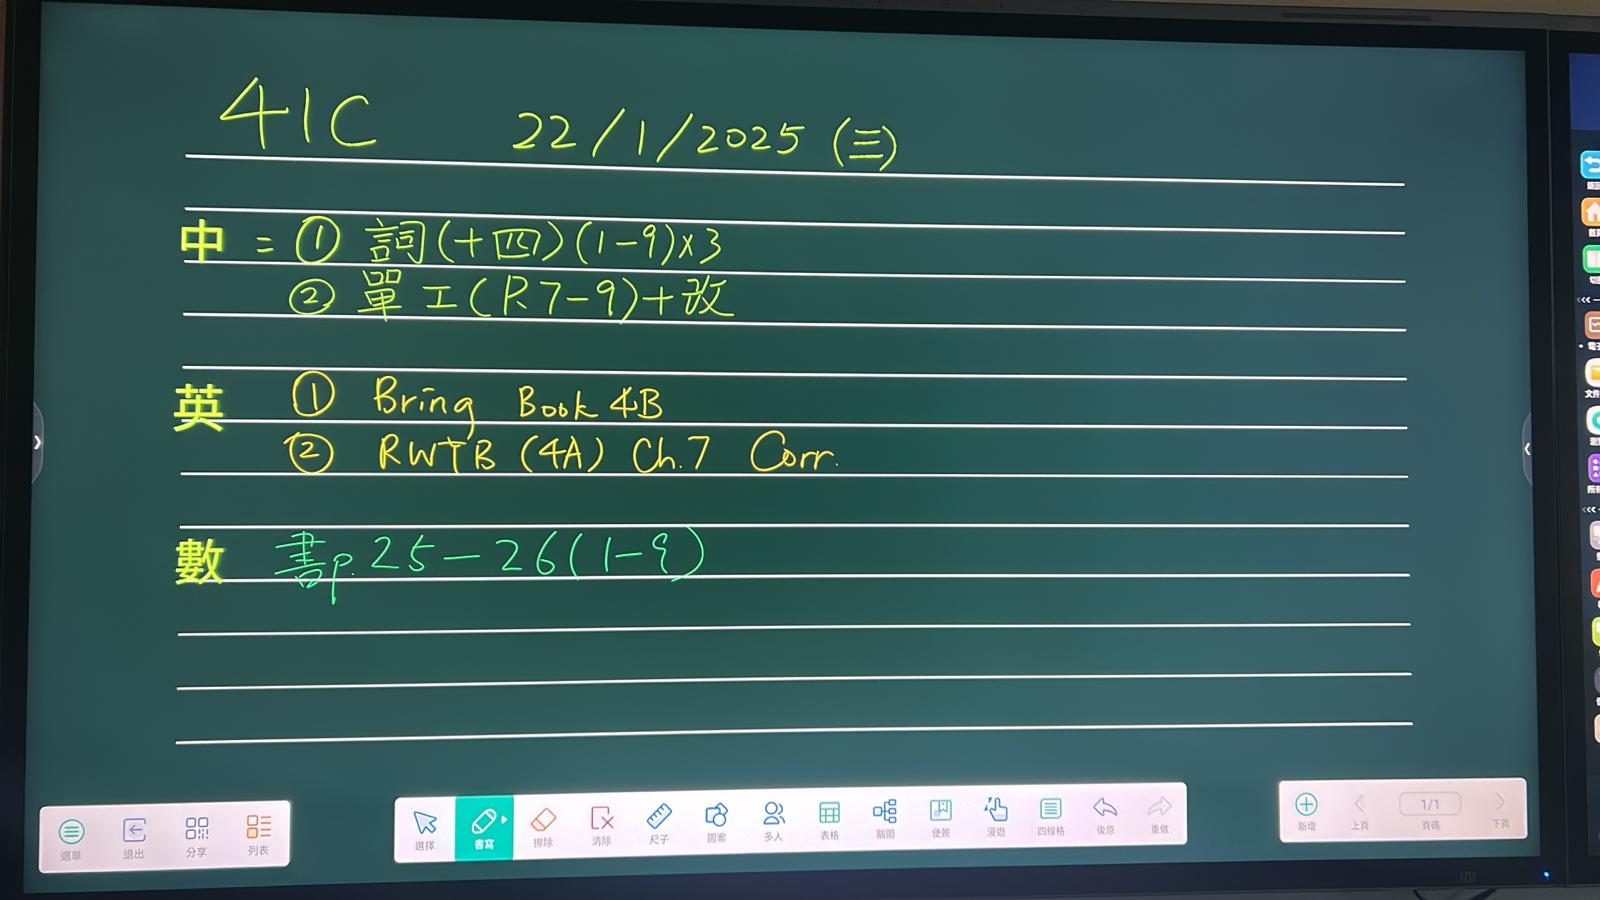 41C 22/1/2025 (三)
中 = ① 詞(十四)(1-9)x3
② 單工(P.7-9)+改
英 ① Bring Book 4B
② RWTB (4A) Ch.7 Corr.
數 書p.25-26(1-9)
選單 退出 分享 列表
選擇 書寫 擦除 清除 尺子 圖案 多人 表格 腦圖 便簽 漫遊 四線格 復原 重做
新增 上頁 1/1 頁碼 下頁